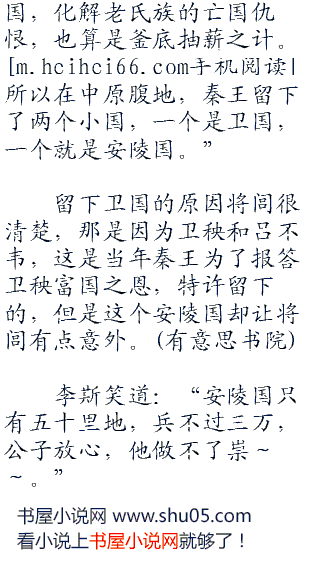 国，化解老氏族的亡国仇
恨，也算是釜底抽薪之计。
[m.hcihci66.com手机阅读|
所以在中原腹地，秦王留下
了两个小国，一个是卫国，
一个就是安陵国。”
留下卫国的原因将闾很
清楚，那是因为卫秧和吕不
韦，这是当年秦王为了报答
卫秧富国之恩，特许留下
的，但是这个安陵国却让将
闾有点意外。(有意思书院)
李斯笑道：“安陵国只
有五十里地，兵不过三万，
公子放心，他做不了祟～
～。”
书屋小说网 www.shu05.com
看小说上书屋小说网就够了！